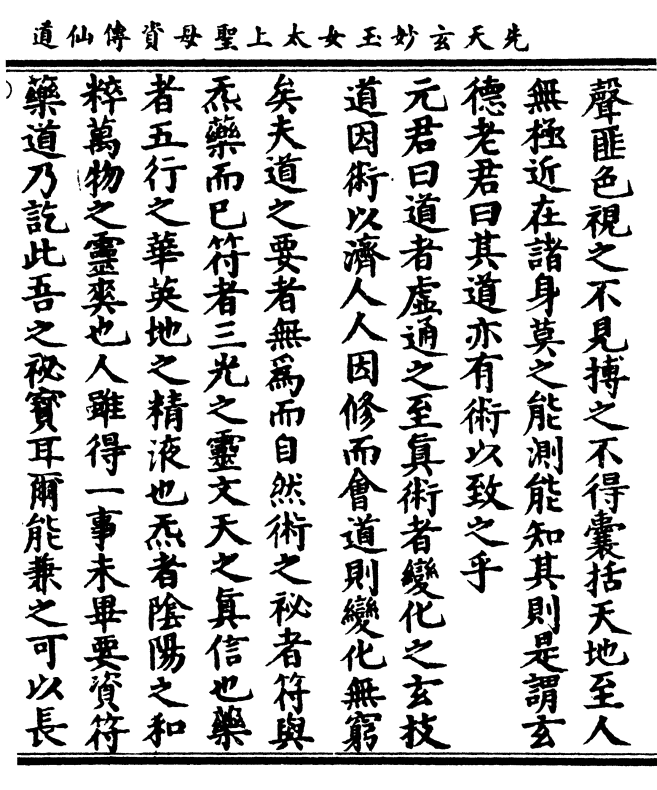 先天玄妙玉女太上聖母資傳仙道
聲匪色視之不見搏之不得囊括天地至人
無極近在諸身莫之能測能知其則是謂玄
德老君曰其道亦有術以致之乎
元君曰道者虛通之至眞術者變化之玄技
道因術以濟人人因修而會道則變化無窮
矣夫道之要者無爲而自然術之祕者符與
炁藥而已符者三光之靈文天之眞信也藥
者五行之華英地之精液也炁者陰陽之和
粹萬物之靈爽也人雖得一事未畢要資符
藥道乃訖此吾之祕寳耳爾能兼之可以長